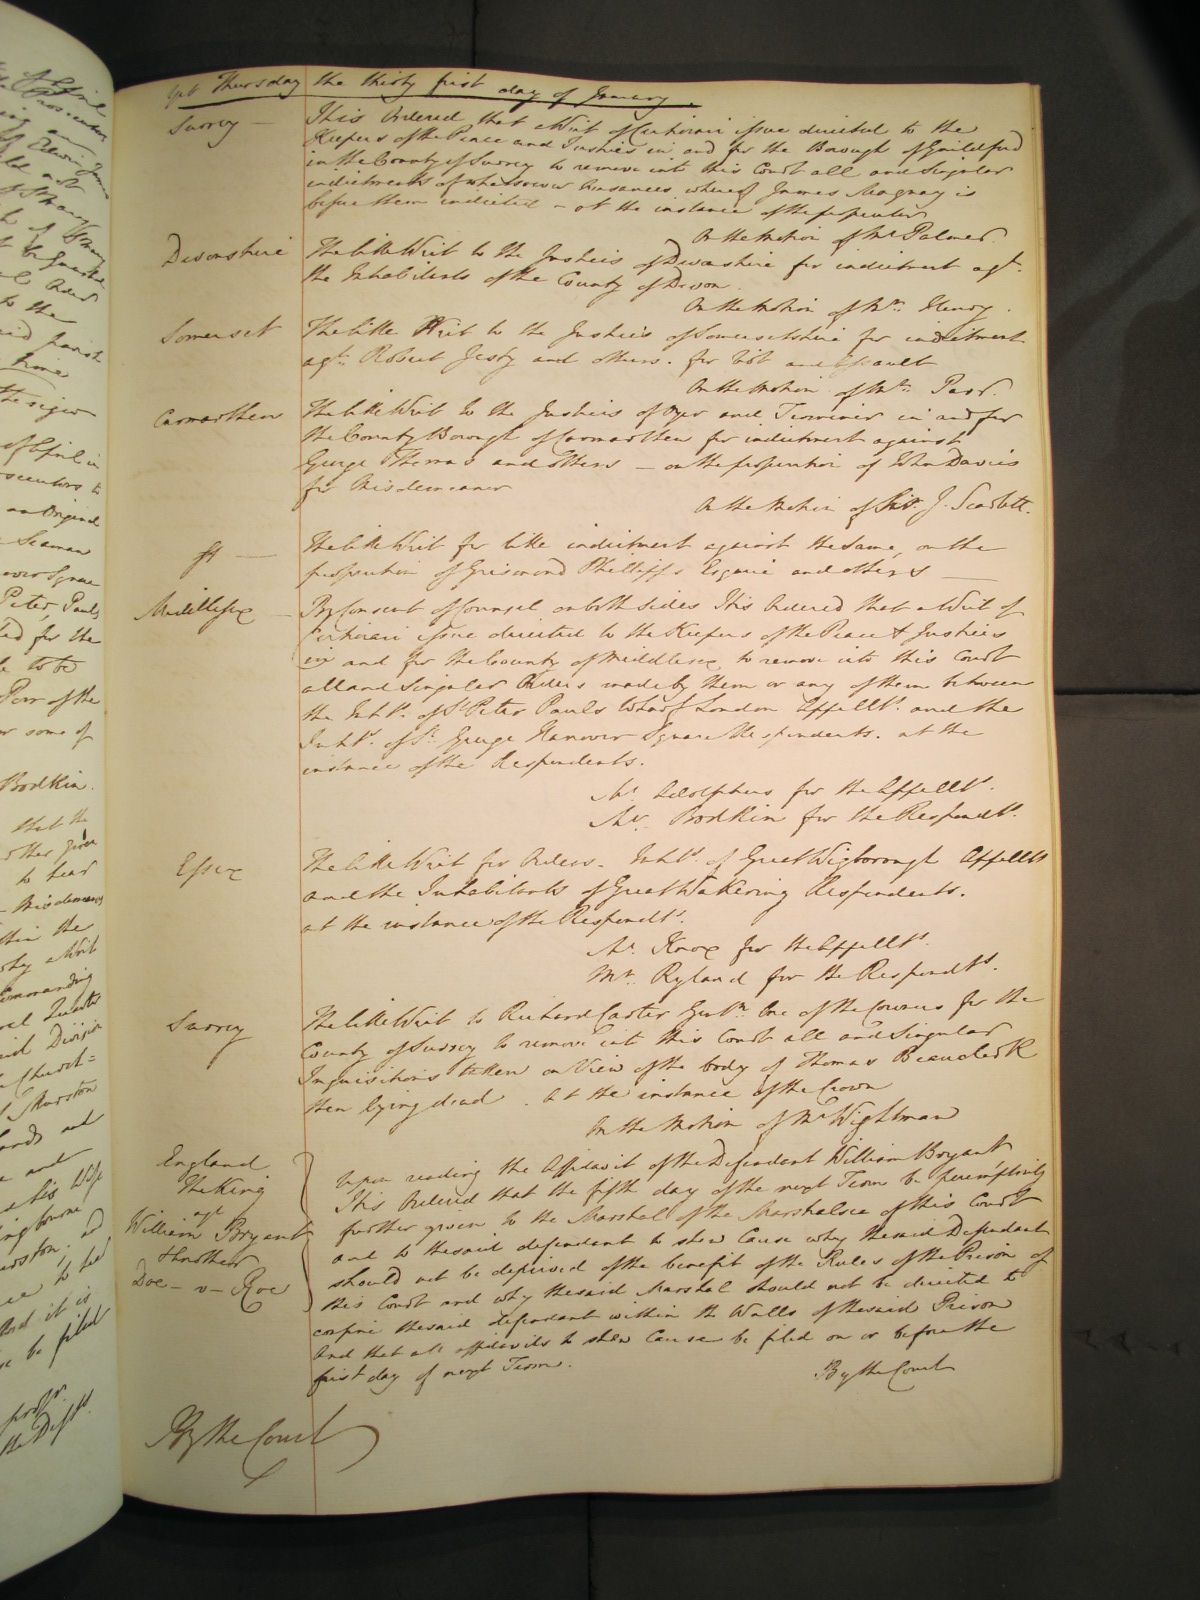 yet Thursday the thirty first day of January.
Surrey —
It is Ordered that a Writ of Certiorari issue directed to the
Keepers of the Peace and Justices in and for the Borough of Guildford
in the County of Surrey to remove into this Court all and Singular
indictments of whatsoever trespasses whereof James Magnay is
before them indicted — at the instance of the prosecutor
On the Motion of Mr. Palmer.
Devonshire
The like Writ to the Justices of Devonshire for indictment agt.
the Inhabitants of the County of Devon.
On the Motion of Mr. Henry.
Somerset
The like Writ to the Justices of Somersetshire for indictment
agt. Robert and others. for Riot and Assault
On the Motion of Mr.
Carmarthen
The like Writ to the Justices of Oyer and Terminer in and for
the County Borough of Carmarthen for indictment against
George Thomas and Others — on the prosecution of John Davies
for Misdemeanor
On the Motion of Sir J. Scarlett.
St —
The like Writ for like indictment against the Same, on the
prosecution of Grismond Phillipps Esquire and others —
Middlesex —
By Consent of Counsel on both sides It is Ordered that a Writ of
Certiorari issue directed to the Keepers of the Peace & Justices
in and for the County of Middlesex to remove into this Court
all and Singular Orders made by them or any of them between
the Inhts. of St. Peter Pauls Wharf London Appellts. and the
Inhts. of St. George Hanover Square Respondents. at the
instance of the Respondents.
Mr. Adolphus for the Appellts.
Mr. Bodkin for the Respondts.
Essex
The like Writ for Orders. Inhts. of Great Wigborough Appellts
and the Inhabitants of Great Wakering Respondents.
at the instance of the Respondts.
Mr. Knox for the Appellts.
Mr. Ryland for the Respondts.
Surrey
The like Writ to Richard Carter Gentn. One of the Coroners for the
County of Surrey to remove into this Court all and Singular
Inquisitions taken on View of the body of Thomas Beauclerk
then lying dead. at the instance of the Crown
On the Motion of Mr. Wightman
England
The King
agt
William Bryant
& another
Doe — v — Roe
Upon reading the Affidavit of the Defendant William Bryant
It is Ordered that the fifth day of the next Term be peremptorily
further given to the Marshal of the Marshalsea of this Court
and to the said defendant to shew Cause why the said Defendant
should not be deprived of the benefit of the Rules of the Prison of
this Court and why the said Marshal should not be directed to
confine the said defendant within the Walls of the said Prison
And that all affidavits to shew Cause be filed on or before the
first day of next Term.
By the Court
By the Court